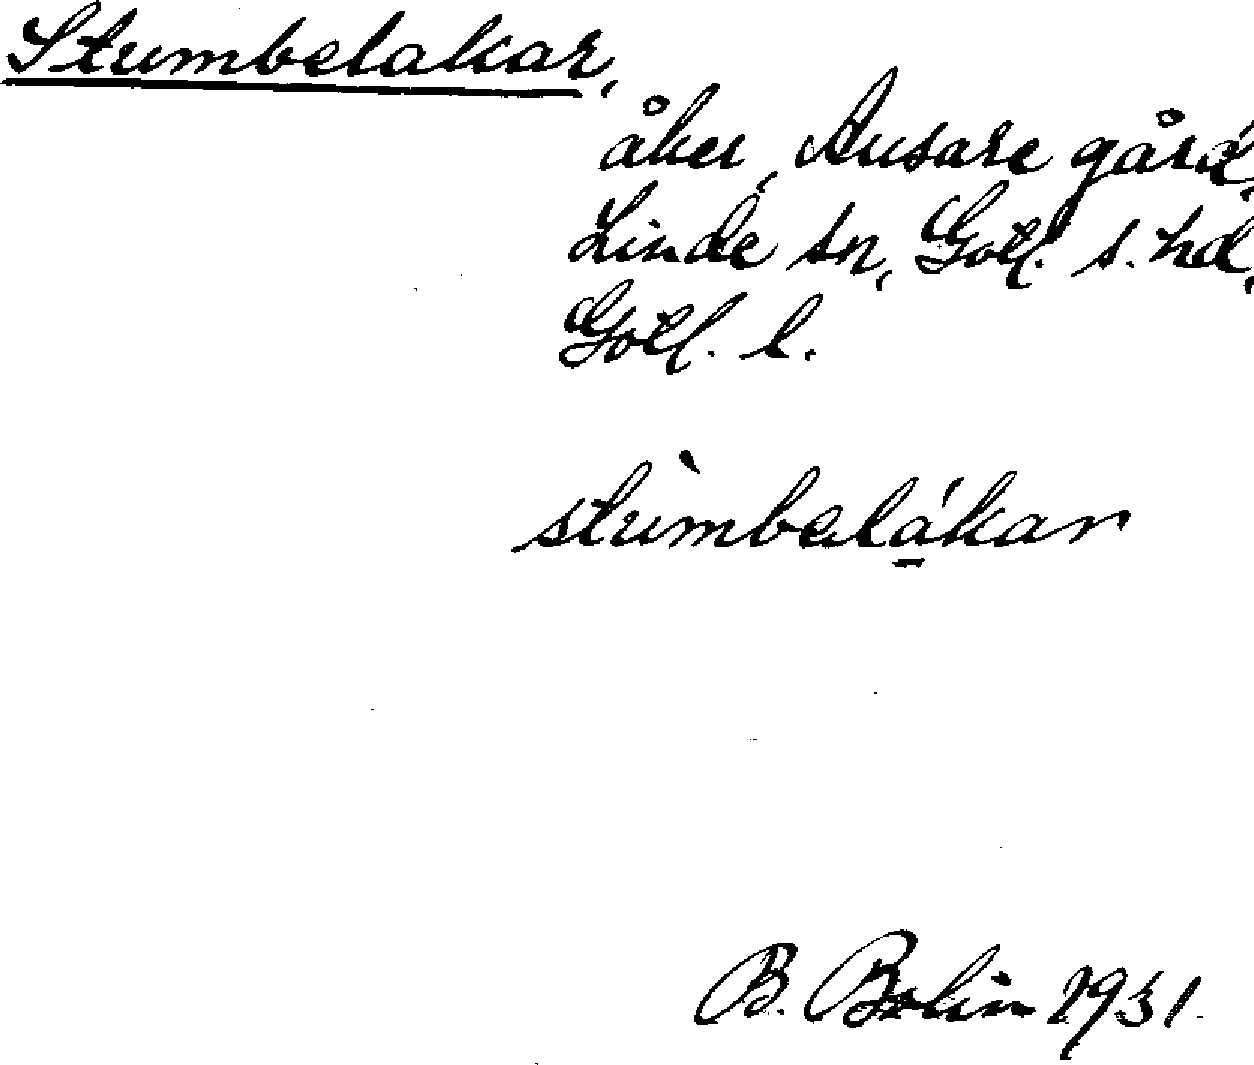 Stumbelakar,
åker, Ausare gård,
Linde sn, Gotl. s. hd,
Gotl. l.
stùmbalákar
B. Bolin 1931